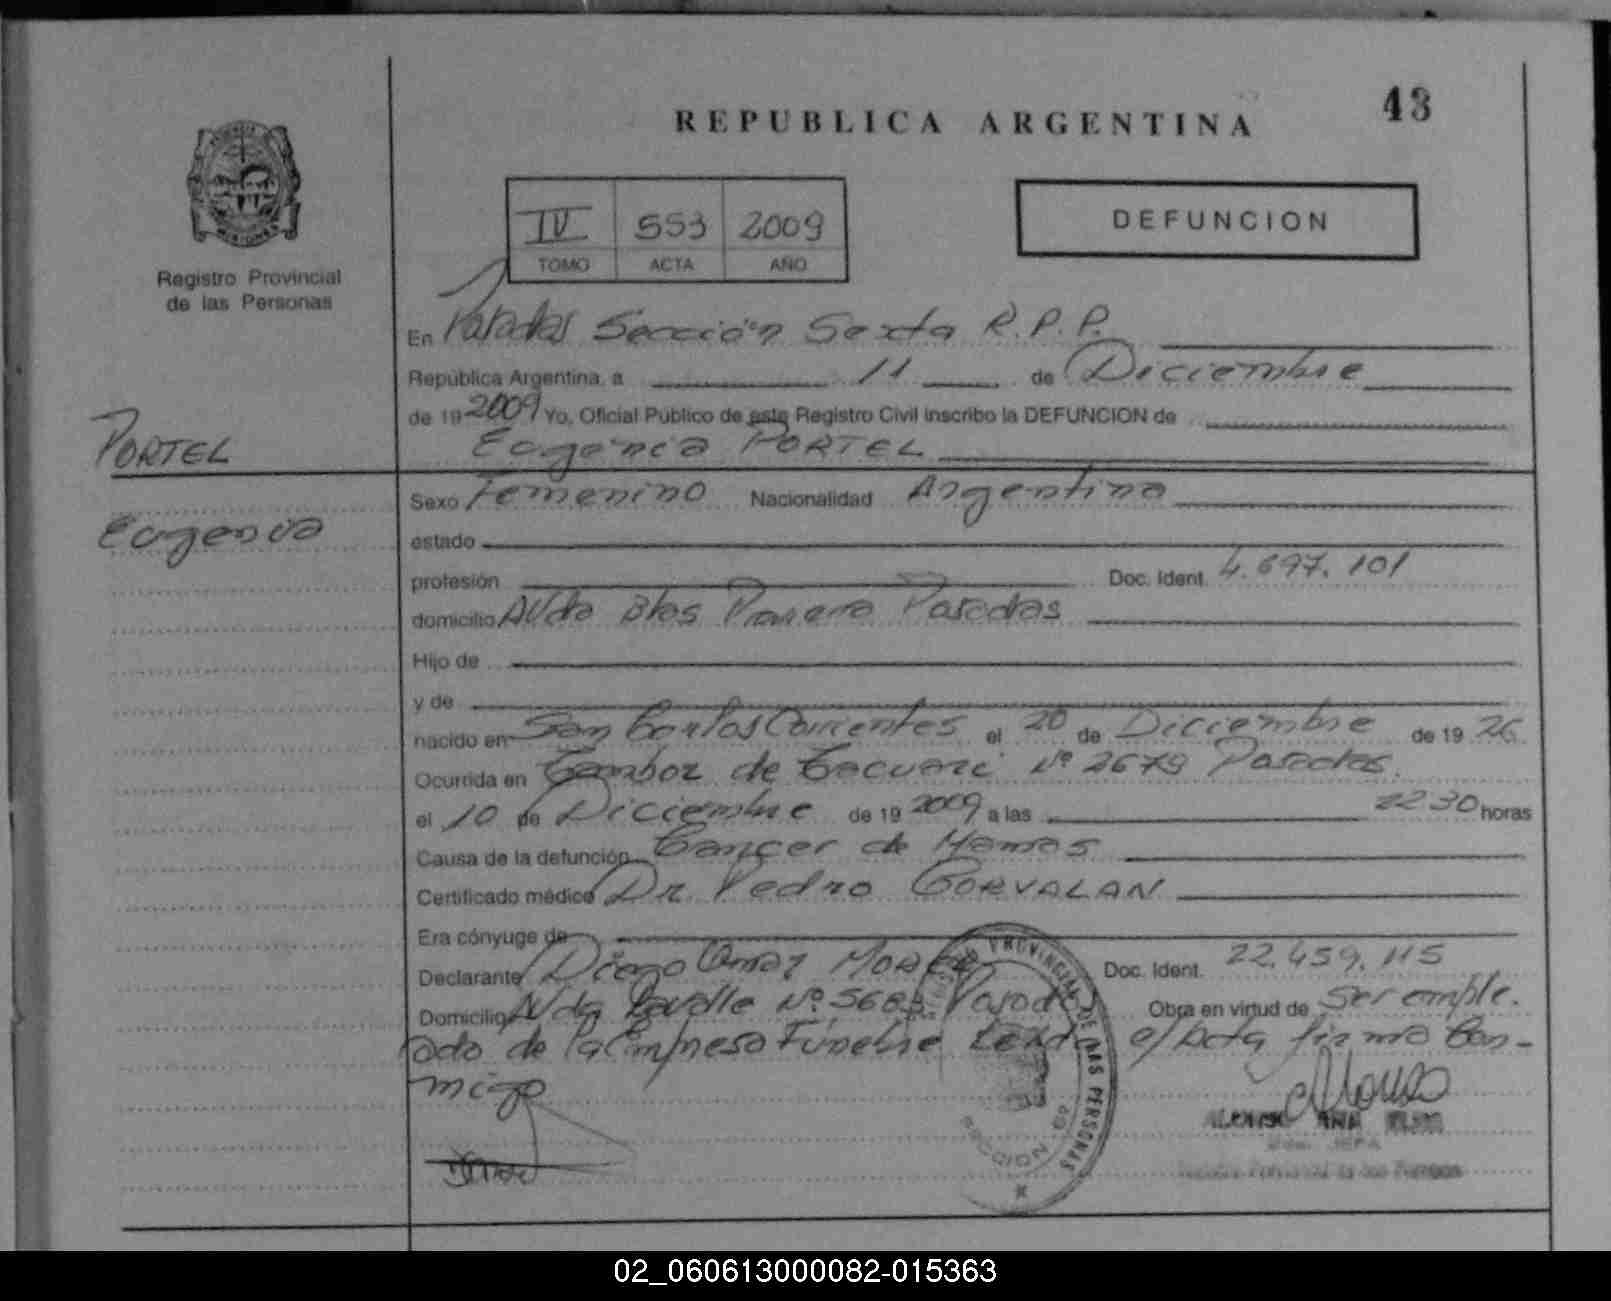 43
REPUBLICA ARGENTINA
IV 553 2009
TOMO ACTA AÑO
DEFUNCION
MISIONES
Registro Provincial
de las Personas
En Posadas Sección Sexta R.P.P.
República Argentina, a 11 de Diciembre
de 19 2009 Yo, Oficial Público de este Registro Civil inscribo la DEFUNCION de
PORTEL
Eugenia PORTEL
Sexo Femenino Nacionalidad Argentina
Eugenia
estado
profesión Doc. Ident. 4.697.101
domicilio AVda Blas Parera Posadas
Hijo de
y de
nacido en San Carlos Corrientes el 20 de Diciembre de 19 26
Ocurrida en Tambor de Tacuari Nº 2679 Posadas.
el 10 de Diciembre de 19 2009 a las 22 30 horas
Causa de la defunción Cancer de Mamas
Certificado médico Dr. Pedro CORVALAN
Era cónyuge de
Declarante Diego Omar Doc. Ident. 22.459.115
Domicilio AVda Lavalle Nº 5683 Posadas Obra en virtud de Ser emple.
ado de la Empresa Fúnebre e/ Acta firma Con-
migo
PROVINCIAL DE LAS PERSONAS
SECCION 6ª
ALONSO ANA
JEFA
Registro Provincial de las Personas
02_060613000082-015363